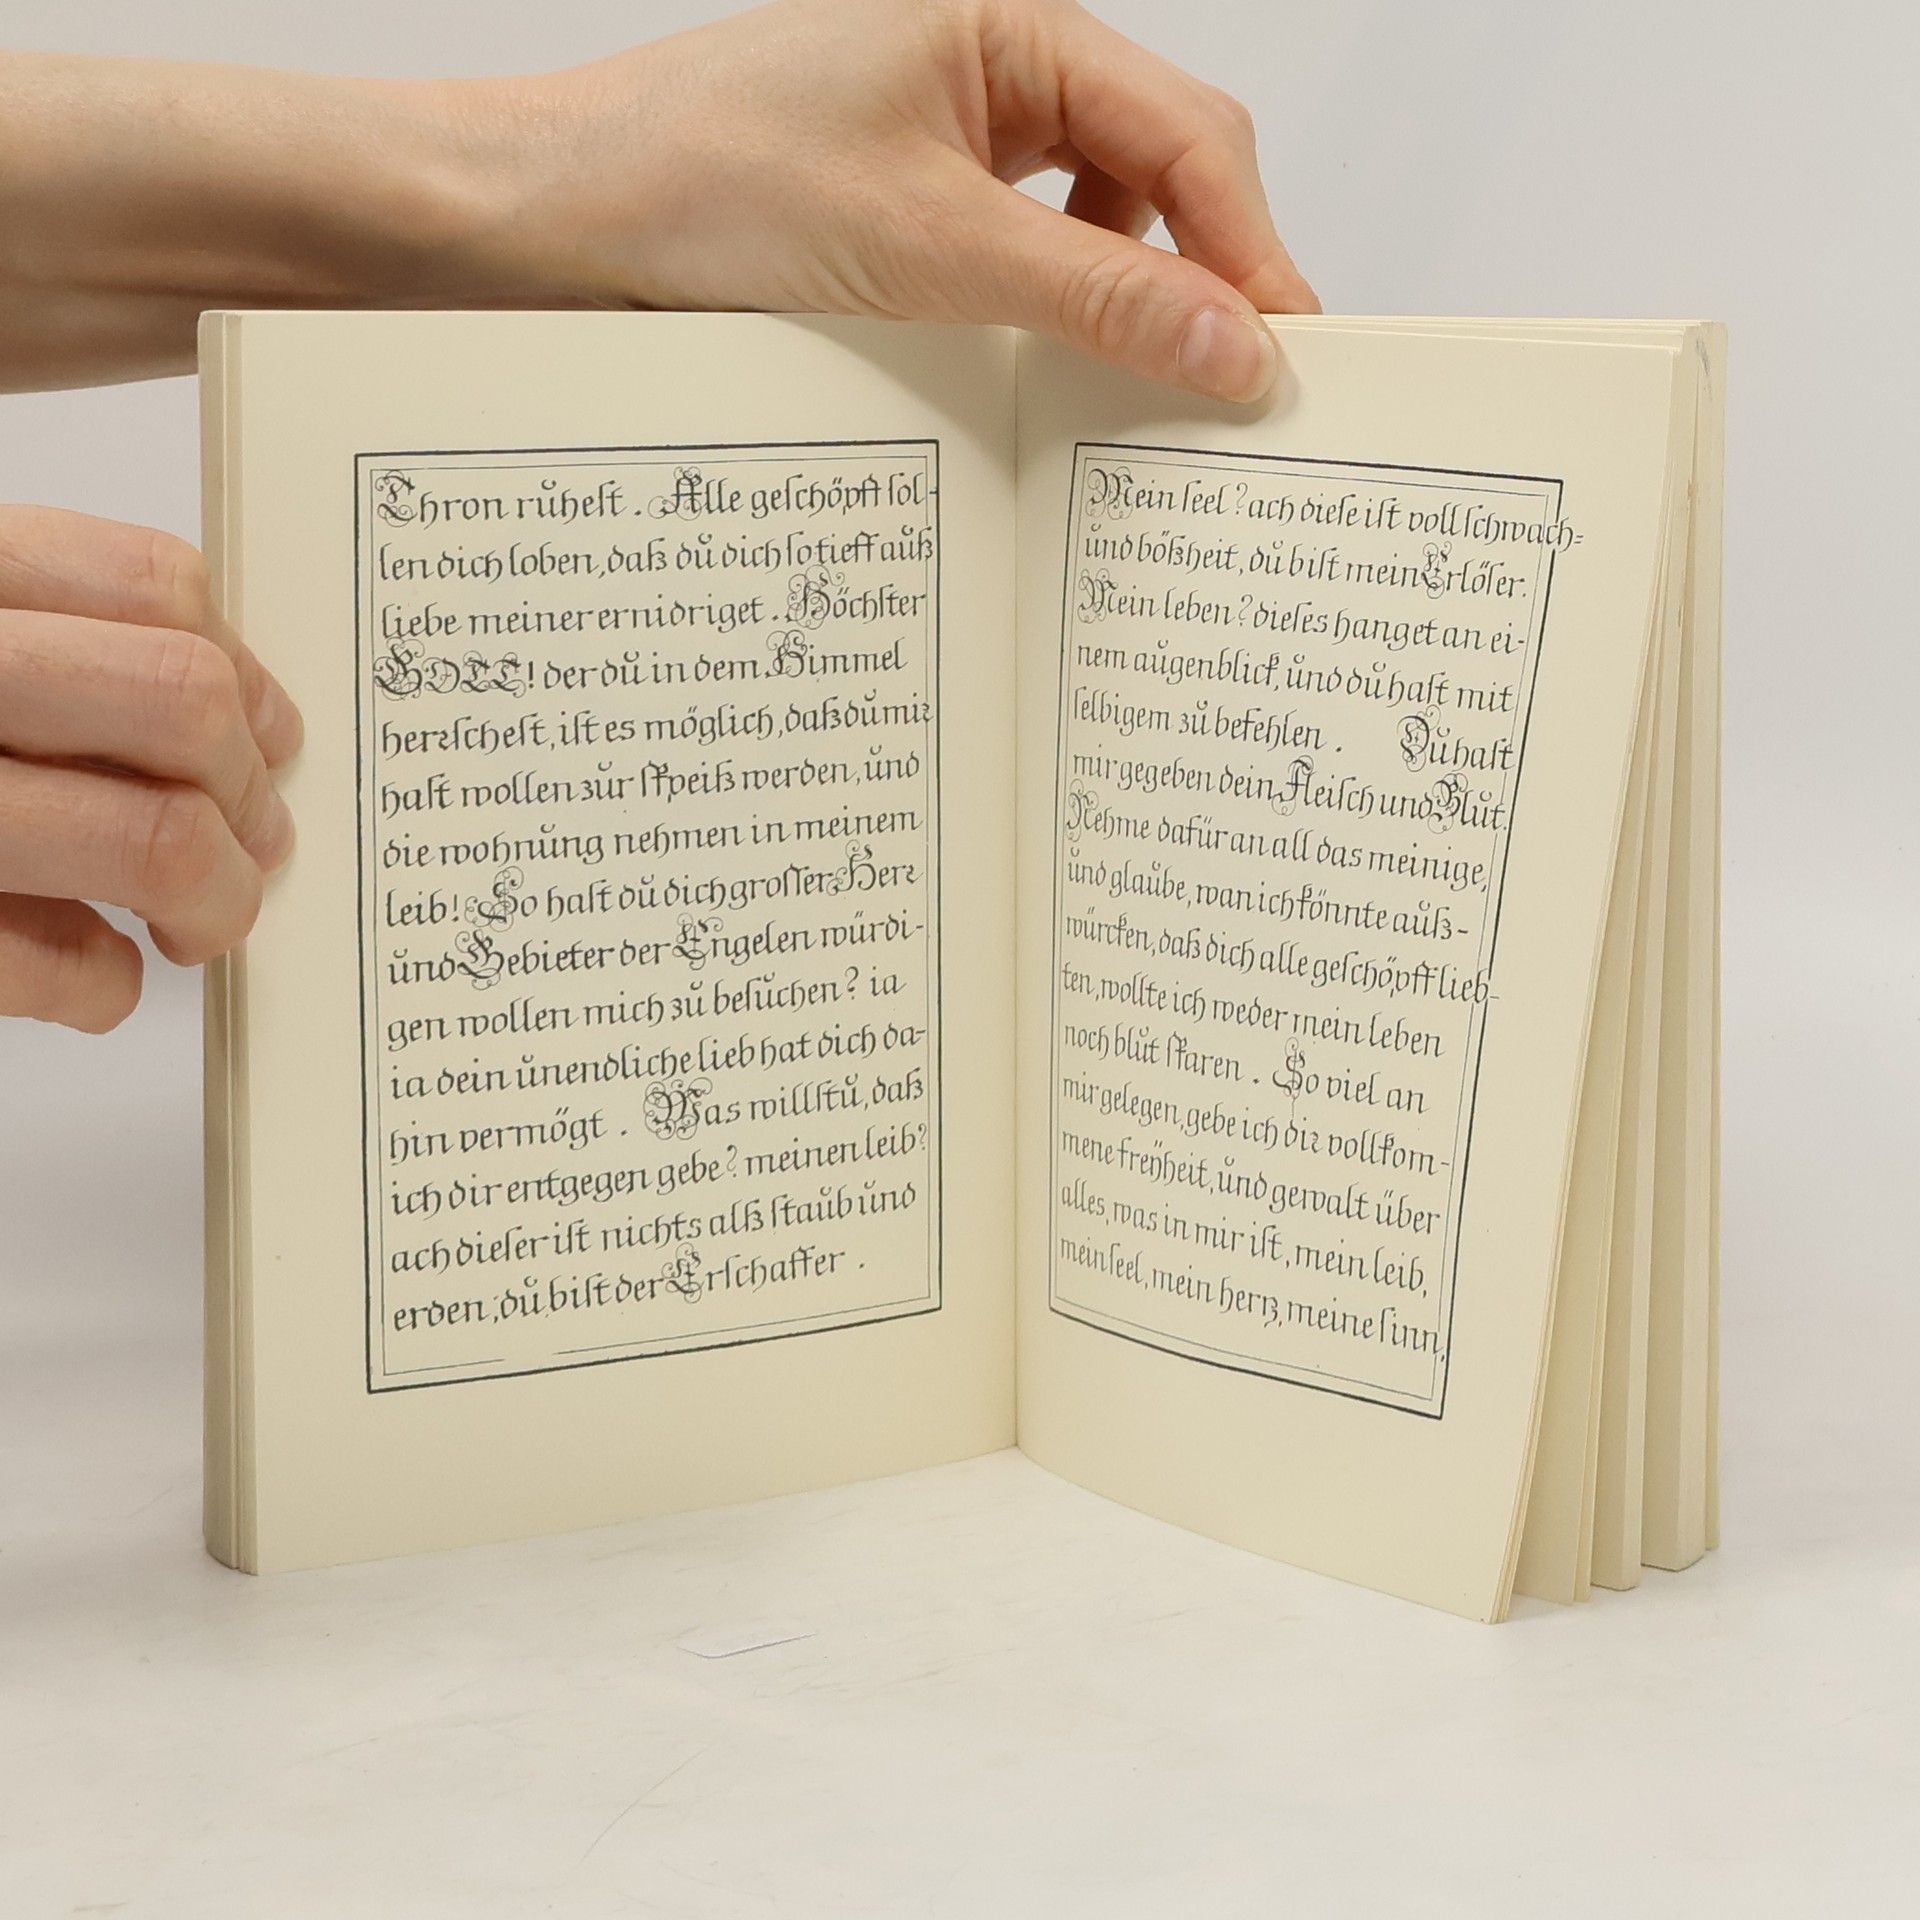 Thron ruheſt. Alle geſchöpft ſol-
len dich loben, daß du dich ſo tieff auß
liebe meiner ernidriget. Höchſter
GOTT! der du in dem Himmel
herrſcheſt, iſt es möglich, daß du mir
haſt wollen zur ſpeiß werden, und
die wohnung nehmen in meinem
leib! So haſt du dich groſſer Herr
und Gebieter der Engelen würdi-
gen wollen mich zu beſuchen? ia
ia dein unendliche lieb hat dich da-
hin vermögt. Was willſtu, daß
ich dir entgegen gebe? meinen leib?
ach dieſer iſt nichts alß ſtaub und
erden; du biſt der Erſchaffer.
Mein ſeel? ach dieſe iſt voll ſchwach=
und bößheit, du biſt mein Erlöſer.
Mein leben? dieſes hanget an ei-
nem augenblick, und du haſt mit
ſelbigem zu befehlen. Du haſt
mir gegeben dein Fleiſch und Blut.
Nehme dafür an all das meinige,
und glaube, wan ich könnte auß-
würcken, daß dich alle geſchöpff lieb-
ten, wollte ich weder mein leben
noch blut ſparen. So viel an
mir gelegen, gebe ich dir vollkom-
mene freÿheit, und gewalt über
alles, was in mir iſt, mein leib,
mein ſeel, mein hertz, meine ſinn,